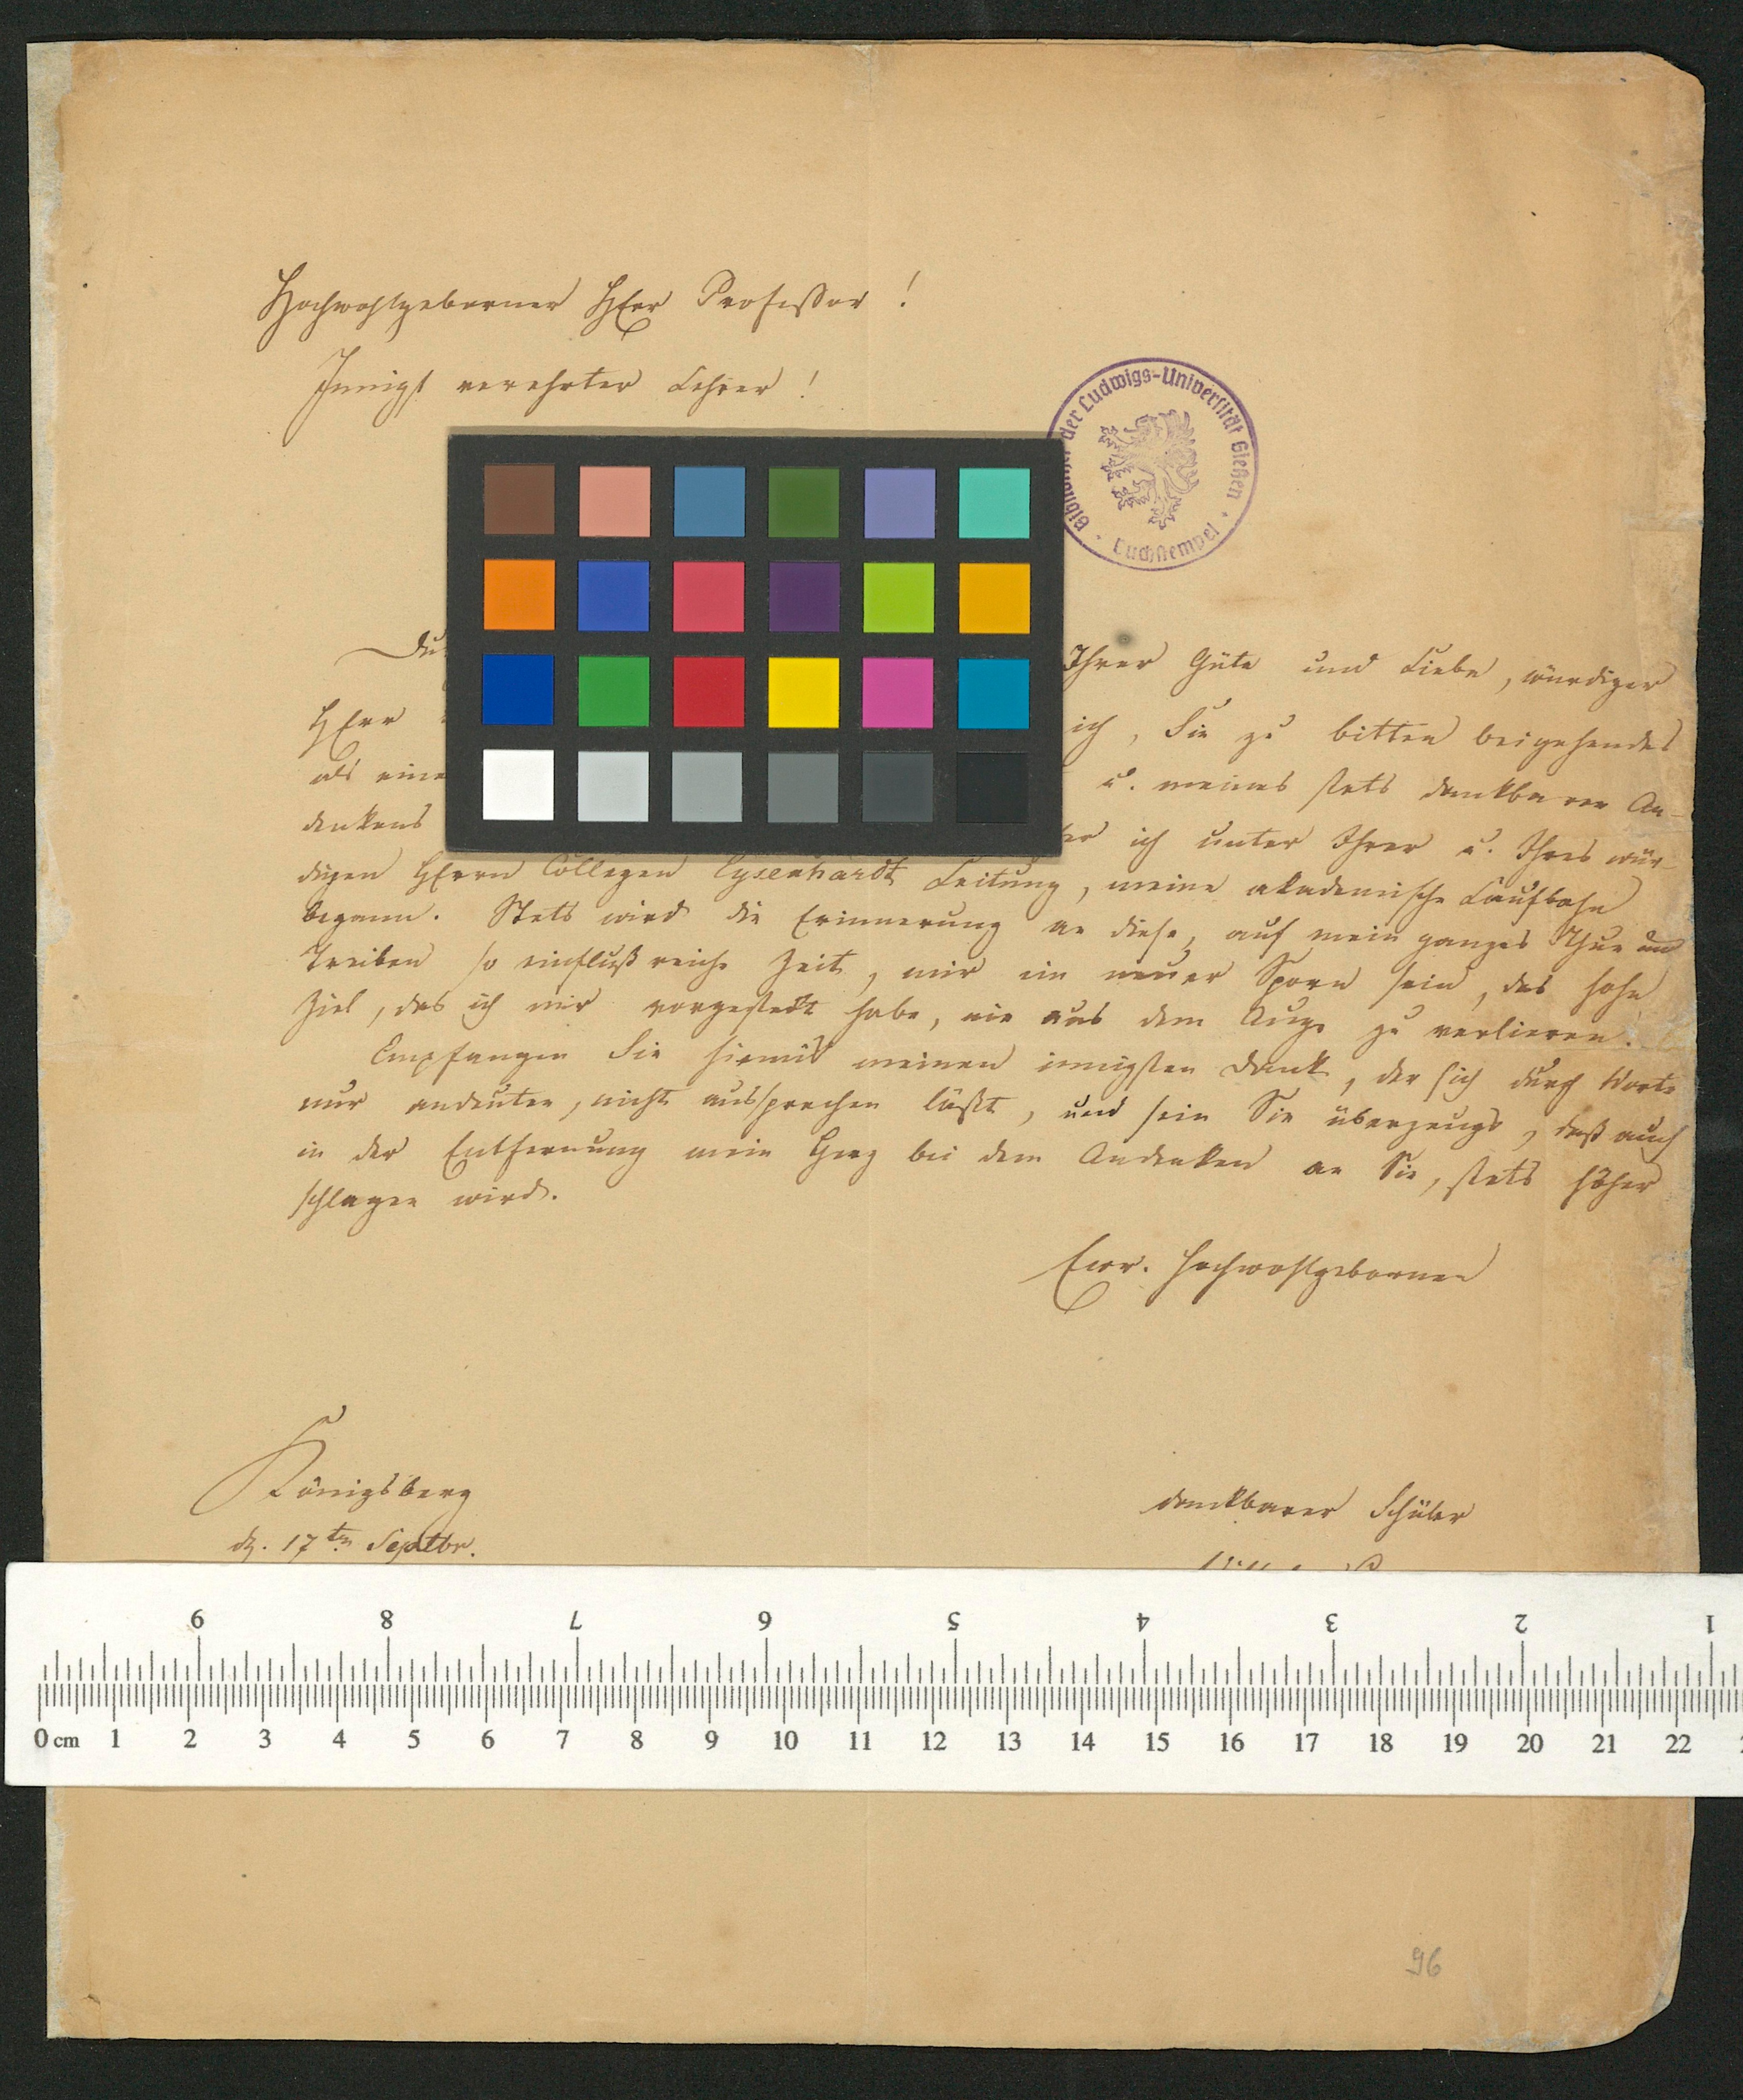 Hochwohlgeborner HErr Professor!
Innigst verehrter Lehrer!
Bibliothek der Ludwigs-Universität Gießen
Buchstempel
Ihrer Güte und Liebe, würdiger
HErr ich, Sie zu bitten beigehendes
als eine u. meines stets dankbaren An-
denkens ich unter Ihrer u. Ihres wür-
digen HErrn Collegen Eysenhardt Leitung, meine akademische Laufbahn
begann. Stets wird die Erinnerung an diese, auf mein ganzes Thun und
Treiben so einflußreiche Zeit, mir ein neuer Sporn sein, das hohe
Ziel, das ich mir vorgesteckt habe, nie aus dem Auge zu verlieren.
Empfangen Sie hiemit meinen innigsten Dank, der sich durch Worte
nur andeuten, nicht aussprechen läßt, und sein Sie überzeugt, daß auch
in der Entfernung mein Herz bei dem Andenken an Sie, stets höher
schlagen wird.
Ewr. Hochwohlgebornen
Königsberg
d. 17ten Septbr.
dankbarer Schüler
9 8 7 6 5 4 3 2 1
0 cm 1 2 3 4 5 6 7 8 9 10 11 12 13 14 15 16 17 18 19 20 21 22
96